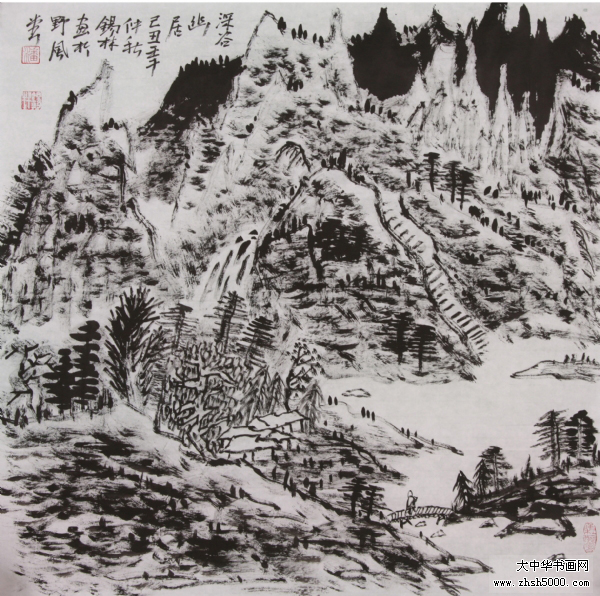 深谷
幽
居
己丑年
仲秋
锡林
画於
野风
堂
大中华书画网
www.zhsh5000.com